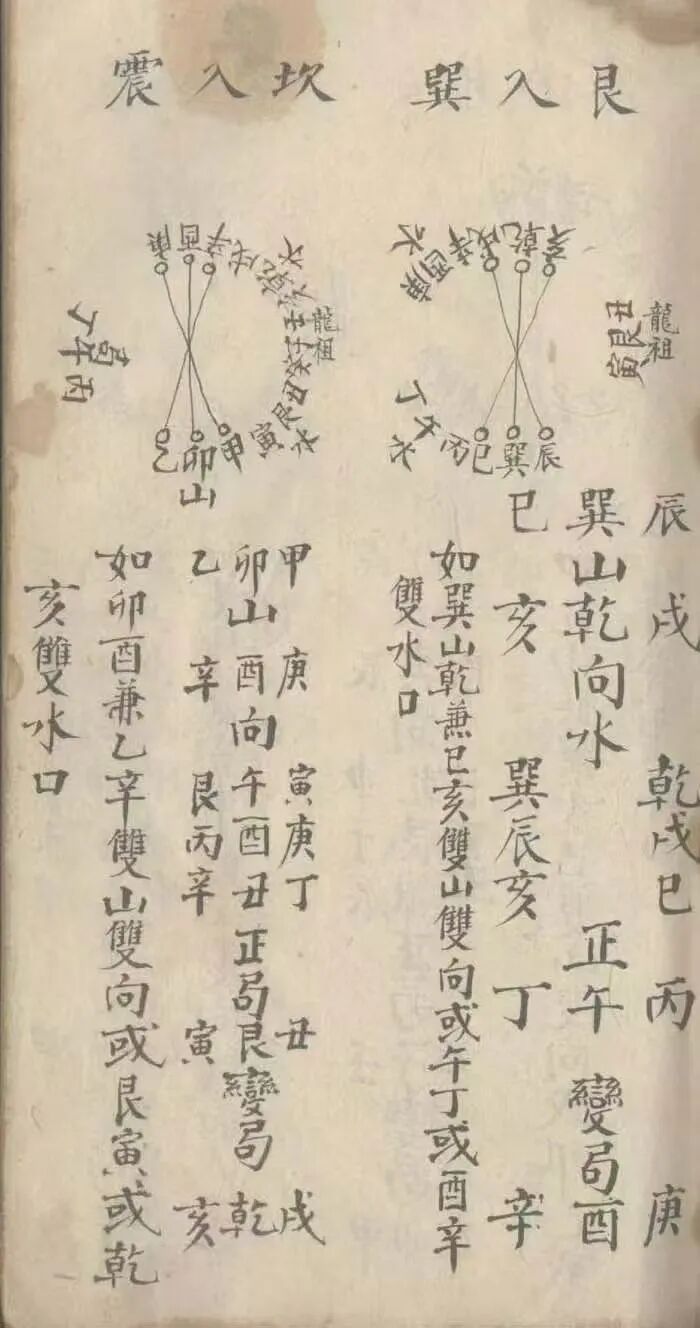 艮入巽
龍祖
丑艮寅
亥乾戌辛酉庚
水
辰巽巳丙午丁
水
辰戌 乾戌巳 丙 庚
巽山乾向水 正午 變局酉
巳亥 巽辰亥 丁 辛
如巽山乾兼巳亥雙山雙向或午丁或酉辛
雙水口
坎入震
龍祖
庚酉辛戌乾亥壬子癸丑艮寅
水
水
甲卯乙
山
丙午丁
局
甲 庚 寅庚丁 丑 戌
卯山酉向午酉丑正局艮變局乾
乙 辛 艮丙辛 寅 亥
如卯酉兼乙辛雙山雙向或艮寅或乾
亥雙水口